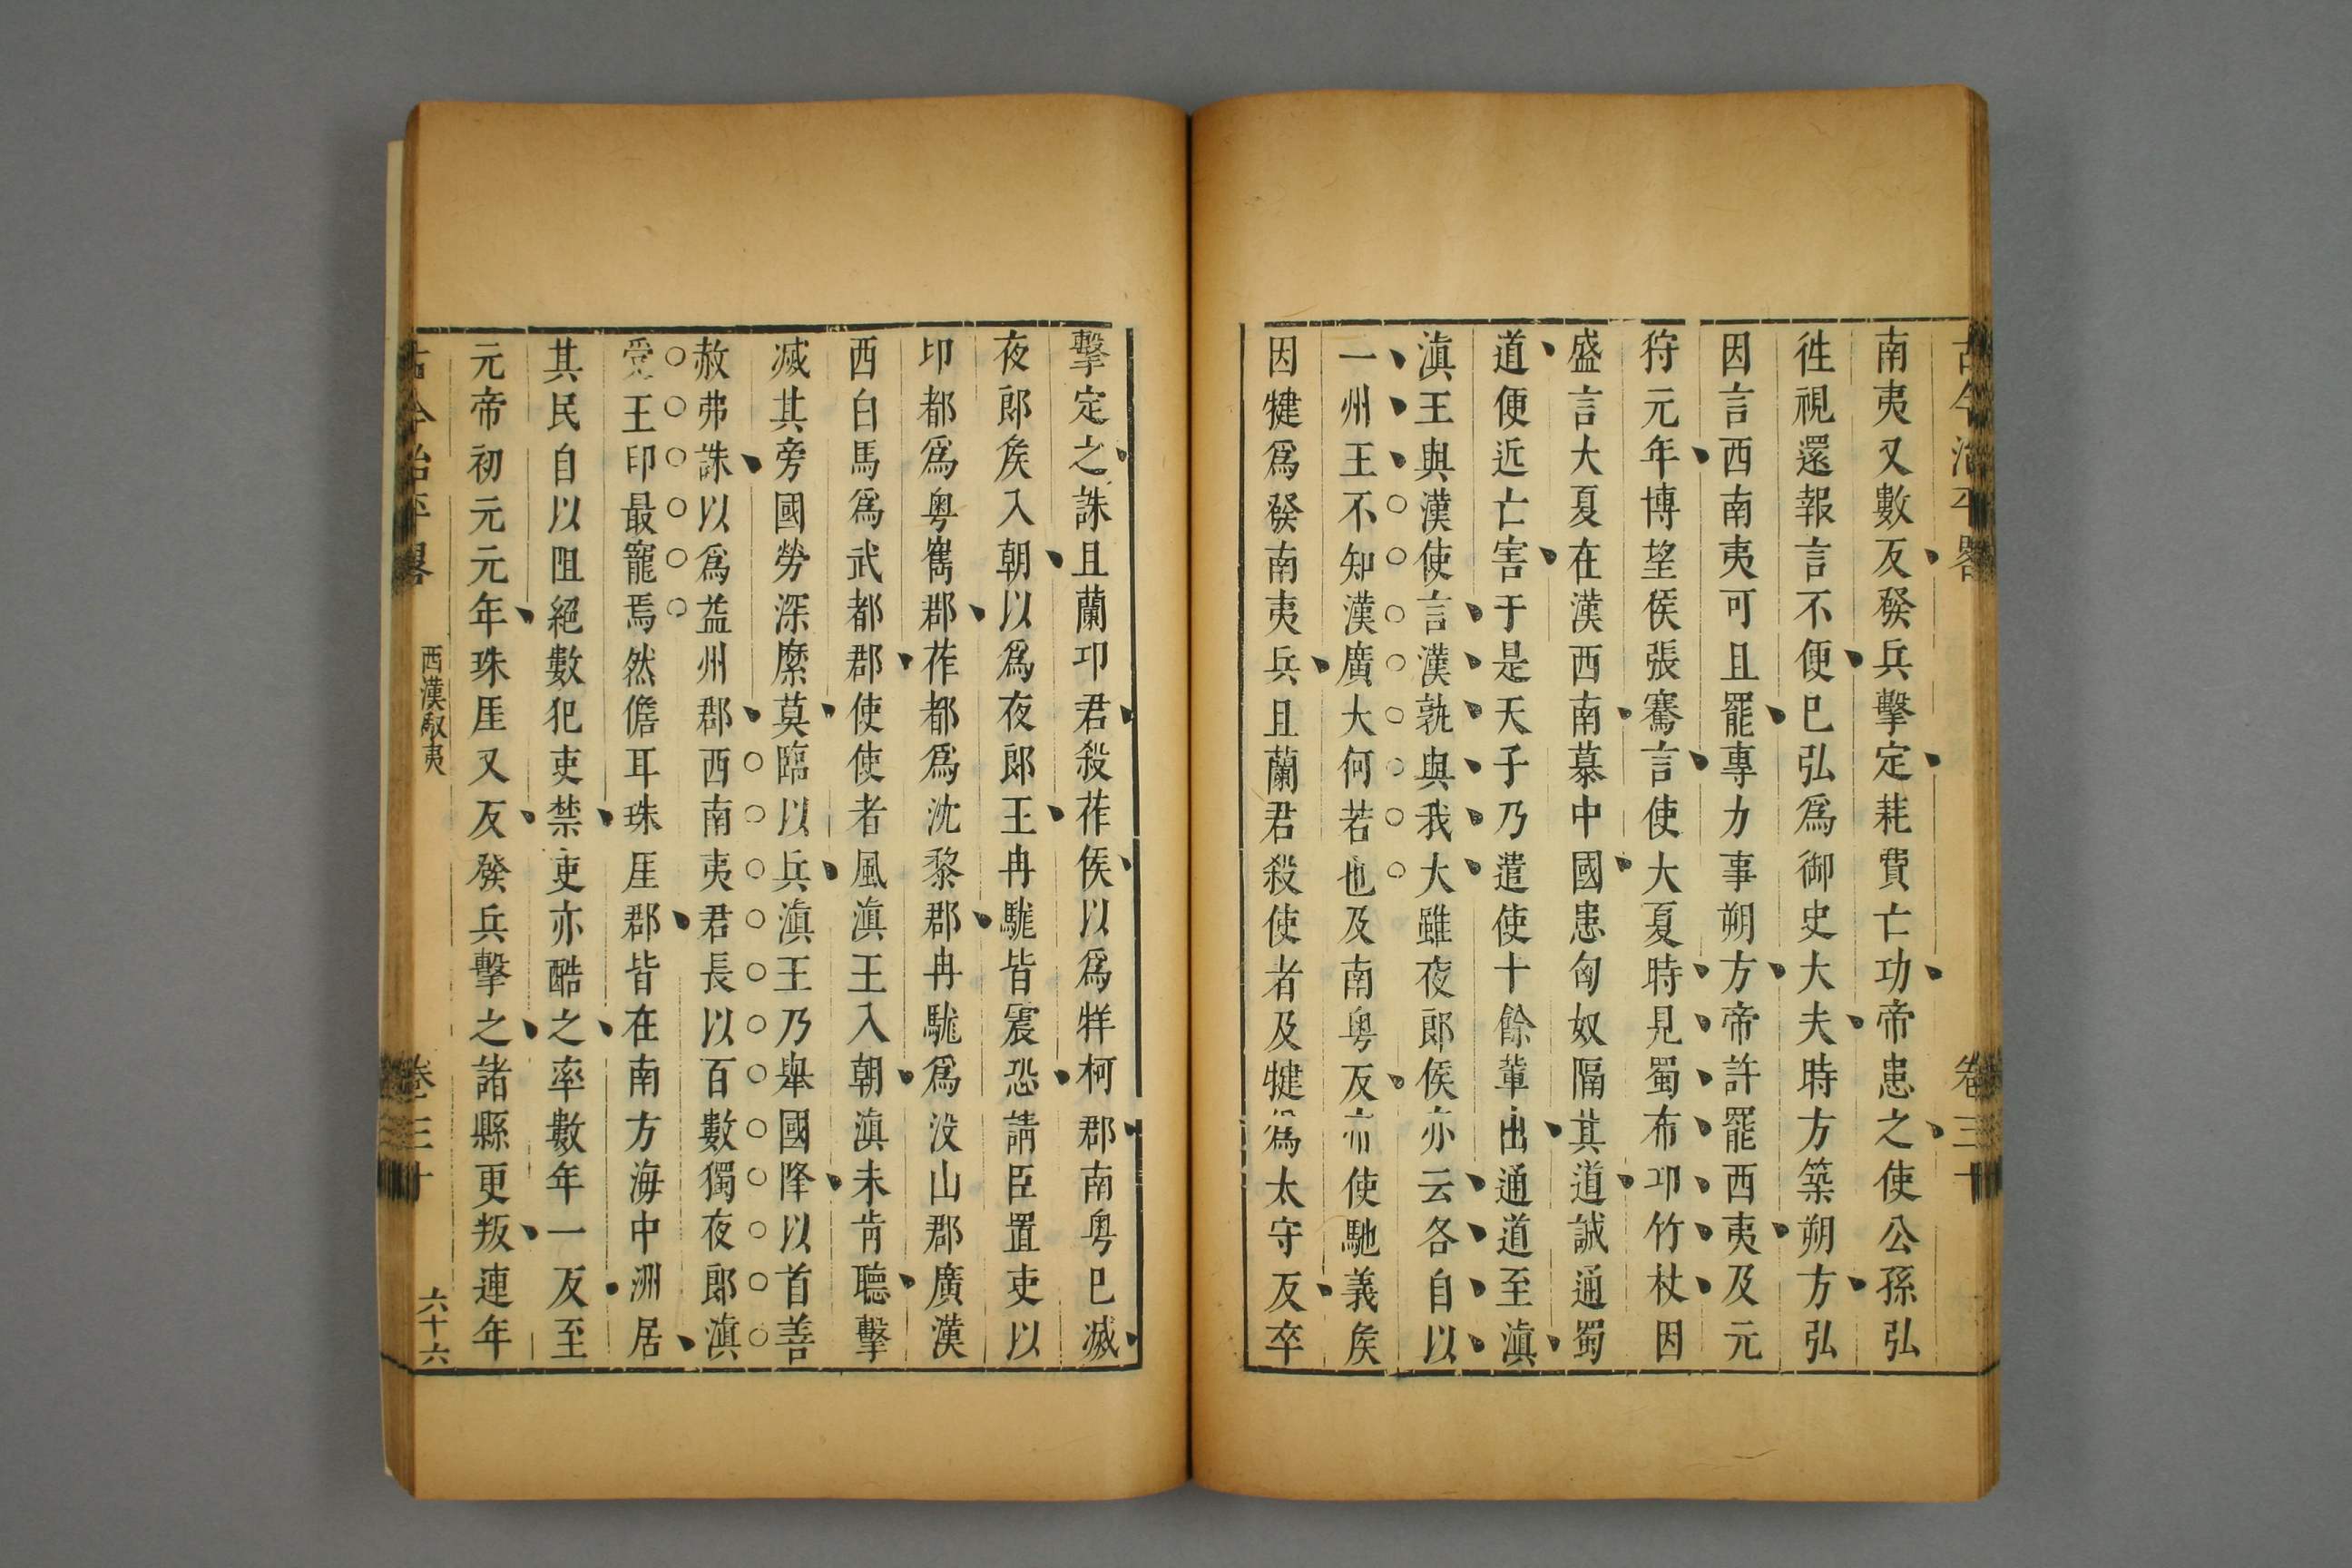 古今治平畧 卷三十
南夷又數反發兵擊定耗費亡功帝患之使公孫弘
徃視還報言不便巳弘爲御史大夫時方築朔方弘
因言西南夷可且罷專力事朔方帝許罷西夷及元
狩元年博望侯張騫言使大夏時見蜀布卭竹杖因
盛言大夏在漢西南慕中國患匈奴隔其道誠通蜀
道便近亡害于是天子乃遣使十餘輩出通道至滇
滇王與漢使言漢孰與我大雖夜郎侯亦云各自以
一州王不知漢廣大何若也及南粤反亦使馳義矦
因犍爲發南夷兵且蘭君殺使者及犍爲太守反卒
擊定之誅且蘭卭君殺莋侯以爲牂柯郡南粤巳滅
夜郎矦入朝以爲夜郎王冉駹皆震恐請臣置吏以
卭都爲粤嶲郡莋都爲沈黎郡冉駹爲汶山郡廣漢
西白馬爲武都郡使使者風滇王入朝滇未肯聽擊
滅其旁國勞深靡莫臨以兵滇王乃舉國降以首善
赦弗誅以爲益州郡西南夷君長以百數獨夜郎滇
受王印最寵焉然儋耳珠厓郡皆在南方海中洲居
其民自以阻絕數犯吏禁吏亦酷之率數年一反至
元帝初元元年珠厓又反發兵擊之諸縣更叛連年
古今治平畧 西漢馭夷 卷三十 六十六